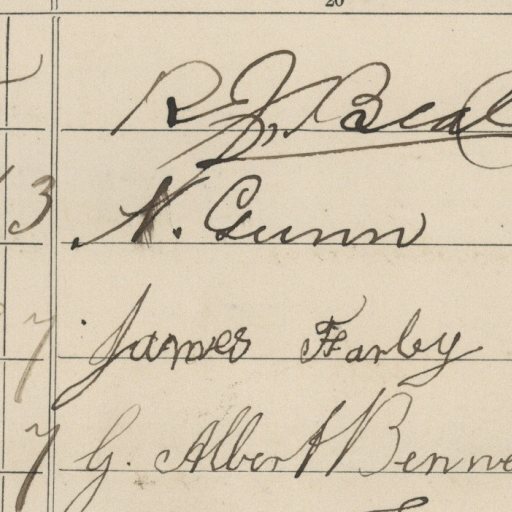 20
R J. Beal
3 N. Gunn
7 James Farley
7 G. Albert Benne